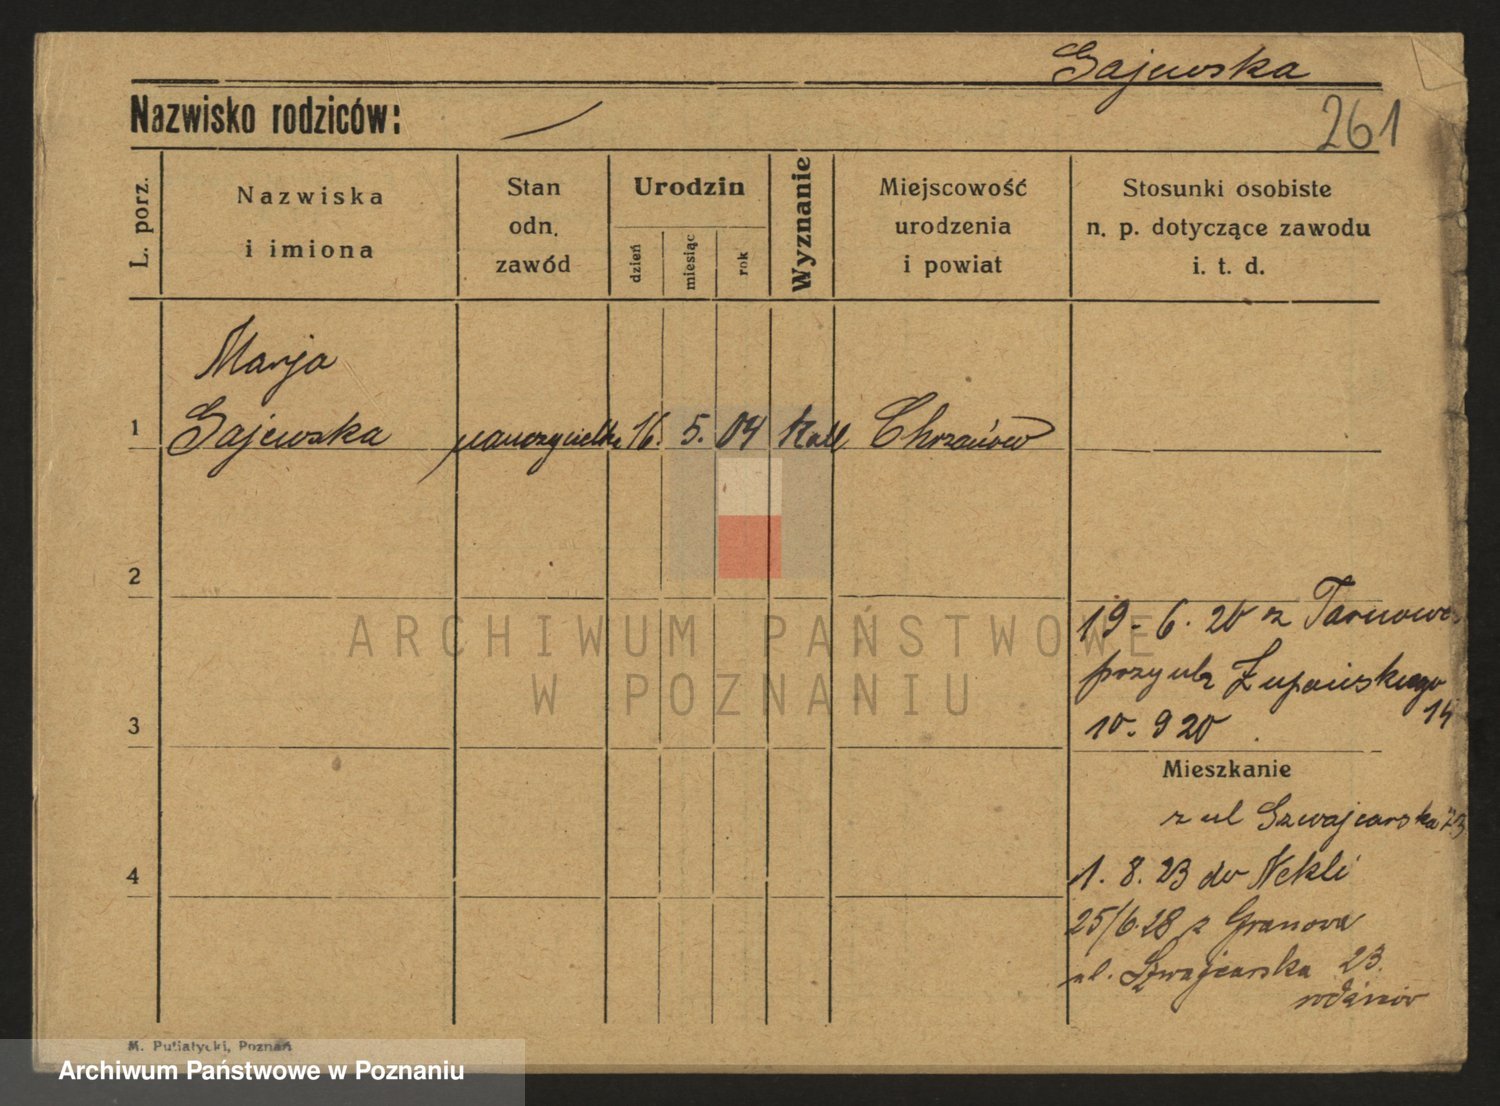 Gajewska
Nazwisko rodziców: —
261
L. porz.
Nazwiska
i imiona
Stan
odn.
zawód
Urodzin
dzień
miesiąc
rok
Wyznanie
Miejscowość
urodzenia
i powiat
Stosunki osobiste
n. p. dotyczące zawodu
i. t. d.
Marja
1 Gajewska nauczycielka 16. 5. 04 katl Chrzanów
2
19-6.20 z Tarnowa
przy ul Żupańskiego
14
3
10-920
Mieszkanie
z ul Szwajcarska 23
4
1. 8. 23 do Nekli
25/6.28 z Granowa
ul. Szwajcarska 23
M. Putiatycki, Poznań
ARCHIWUM PAŃSTWOWE
W POZNANIU
Archiwum Państwowe w Poznaniu